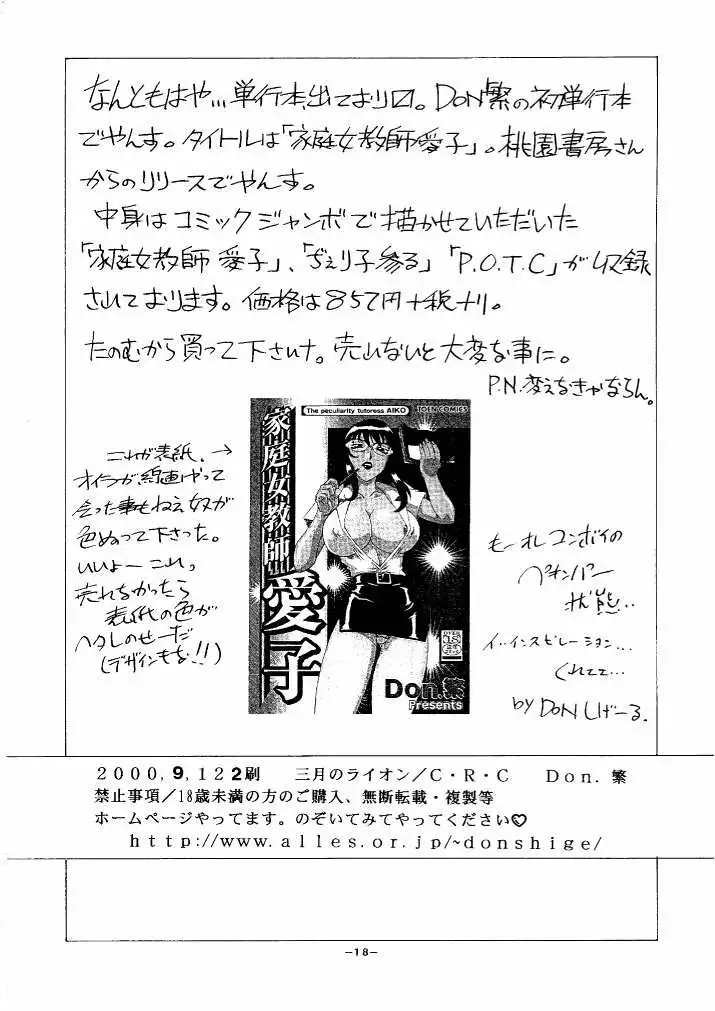 なんともはや…単行本出ております。DON繁の初単行本
でやんす。タイトルは「家庭女教師愛子」。桃園書房さん
からのリリースでやんす。
中身はコミックジャンボで描かせていただいた
「家庭女教師 愛子」、「ぢぇり子参る」「P.O.T.C」が収録
されております。価格は857円+税ナリ。
たのむから買って下さいナ。売れないと大変な事に。
P.N.変えなきゃならん。
The peculiarity tutoress AIKO
TOEN COMICS
家庭女教師
愛子
Don.繁
Presents
これが表紙。→
オイラが線画やって
会った事もねえ奴が
色ぬって下さった。
いいよーこれっ
売れなかったら
表紙の色が
ヘタレのせーだ
(デザインもな!!)
もーれつコンボイの
ペキンパー
状態…
イ…インスピレーション…
くれてて…
by DON しげーる.
2000,9,12 2刷 三月のライオン/C・R・C Don. 繁
禁止事項/18歳未満の方のご購入、無断転載・複製等
ホームページやってます。のぞいてみてやってください♡
http://www.alles.or.jp/~donshige/
-18-